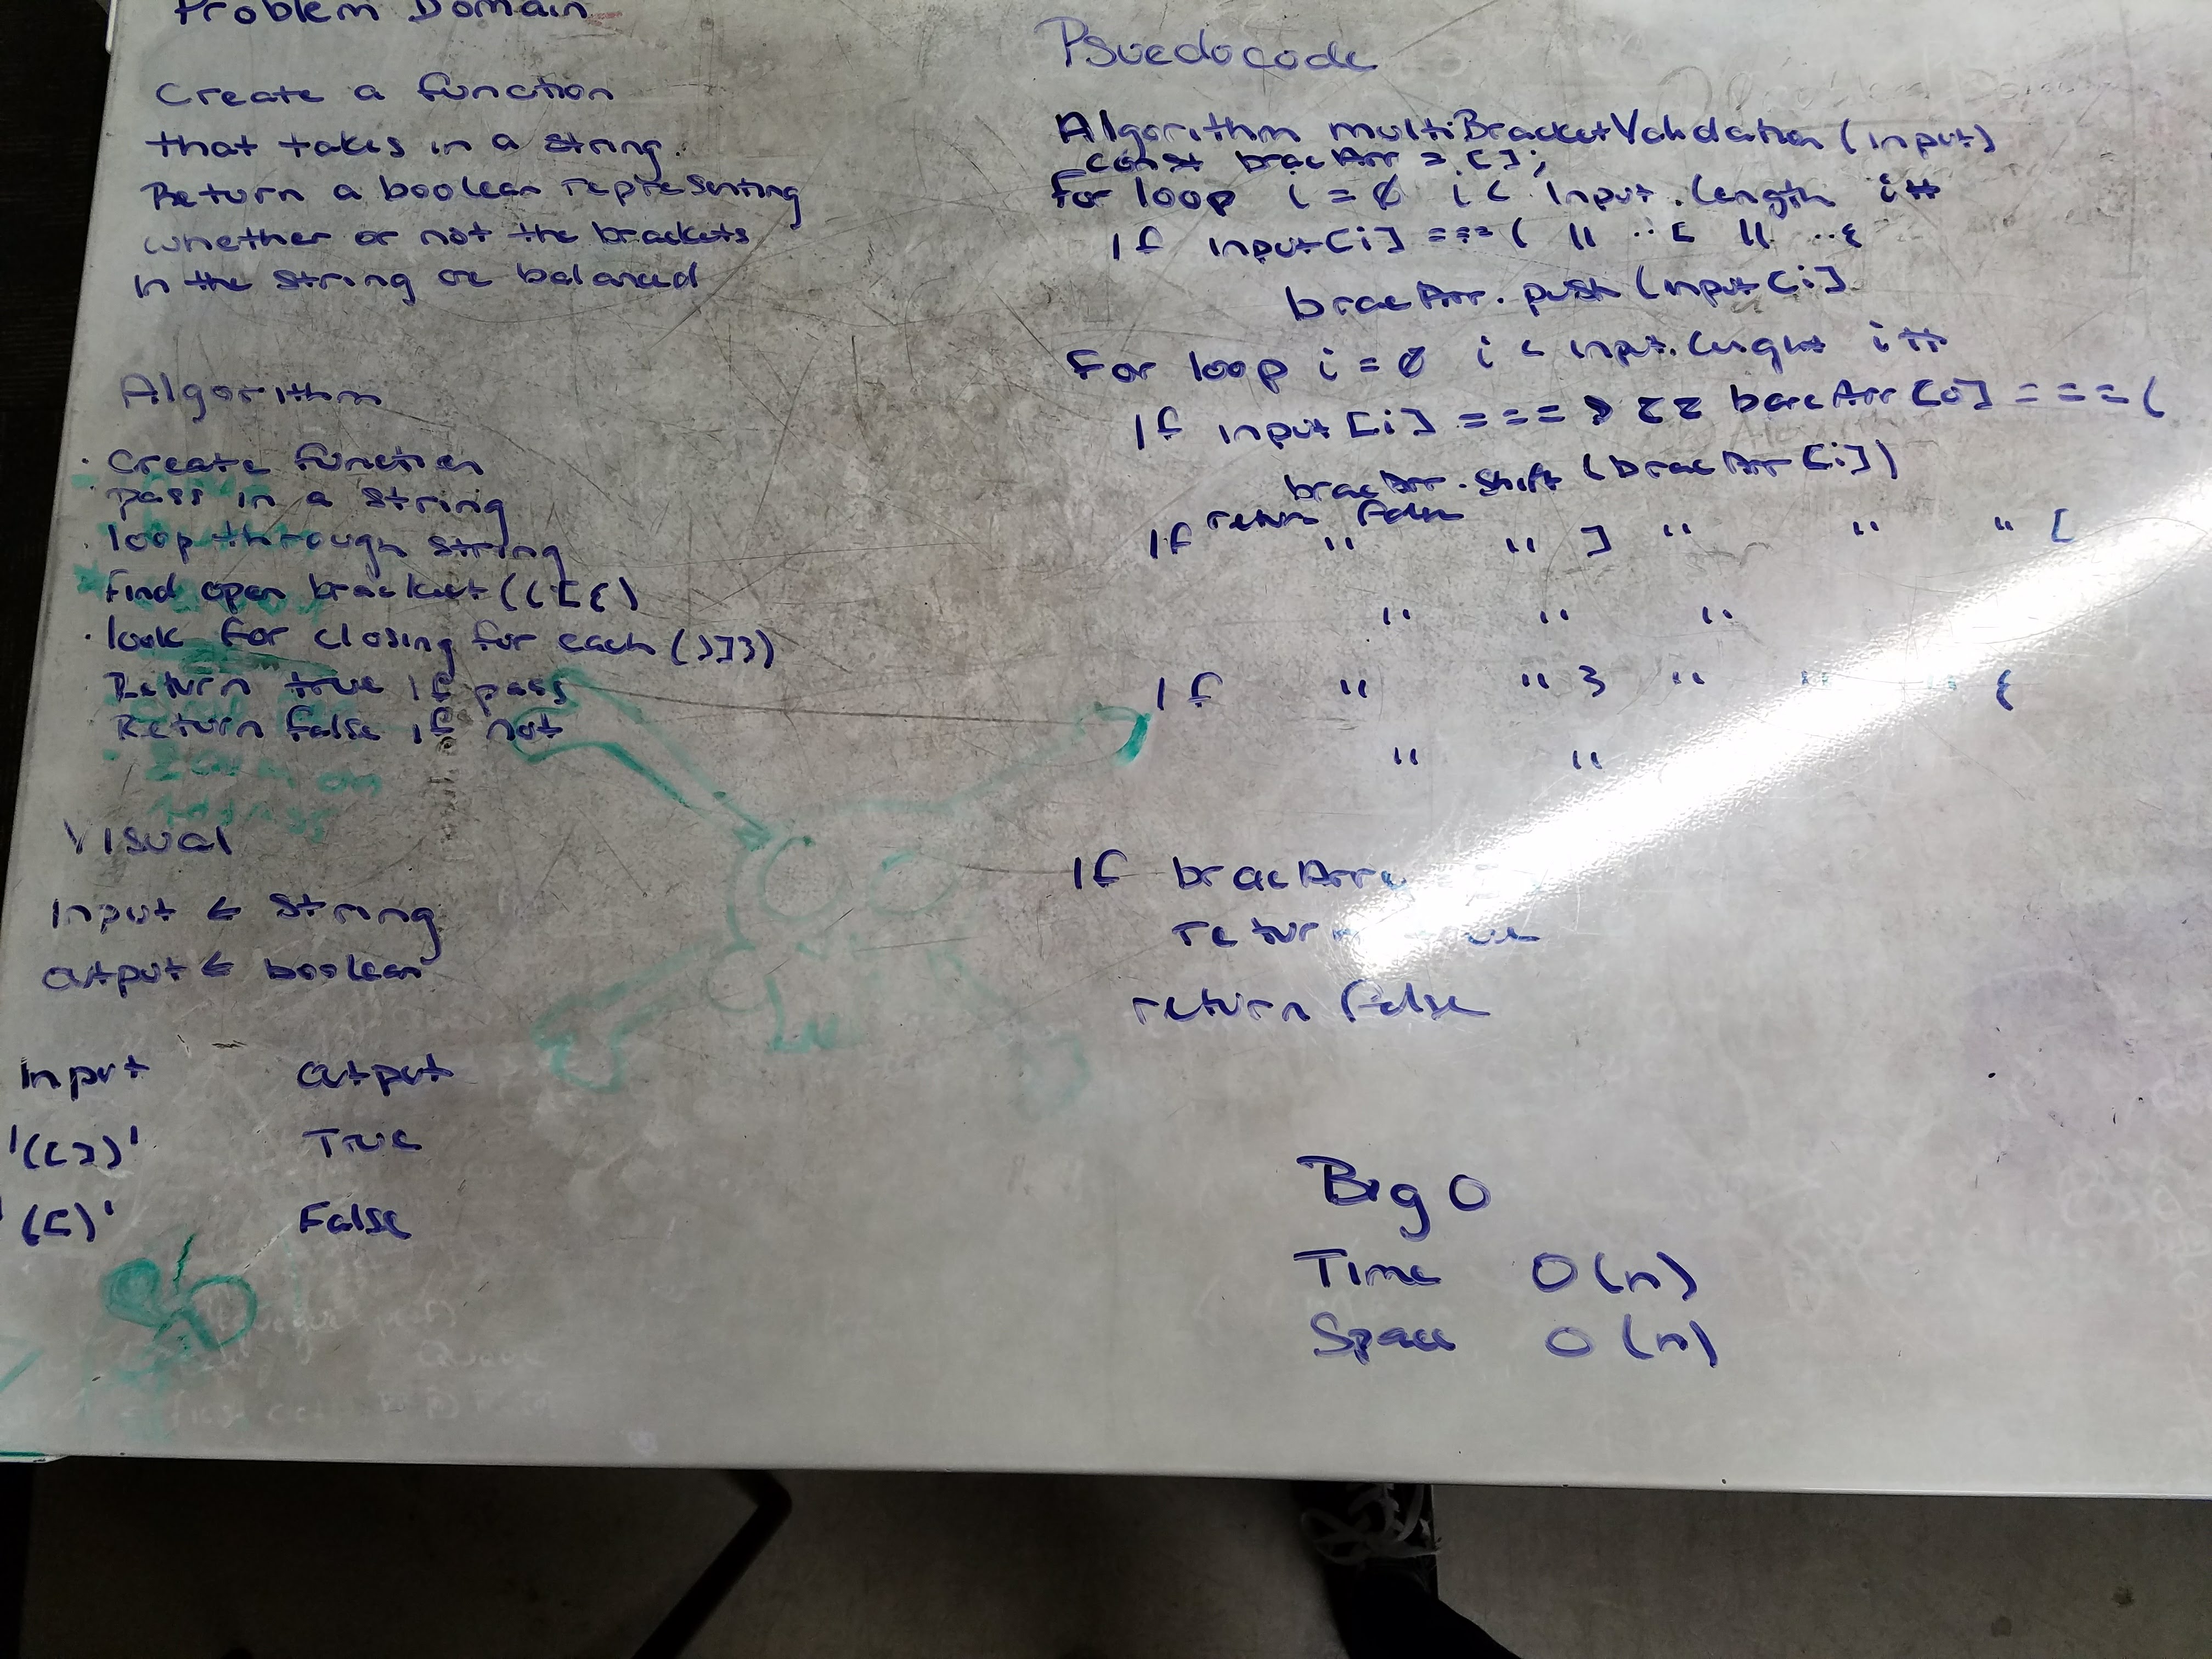 Problem Domain
Create a function
that takes in a string.
Return a boolean representing
whether or not the brackets
in the string are balanced
Algorithm
· Create function
· pass in a string
· loop through string
· find open bracket (([{)
· look for closing for each ()]})
Return true if pass
Return false if not
Visual
Input ← String
Output ← boolean
Input Output
'([])' True
'([)' False
Psuedocode
Algorithm multiBracketValidation (input)
const bracArr = [];
for loop i = 0 i < input.length i++
If input[i] === ( || ..[ || ..{
bracArr.push (input[i]
For loop i = 0 i < input.lenght i++
If input[i] === ) && bracArr[0] === (
bracArr.shift (bracArr[i])
return false
If " " ] " " " [
" " "
If " " } " " " {
" "
If bracArr
return
return false
Big O
Time O(n)
Space O(n)